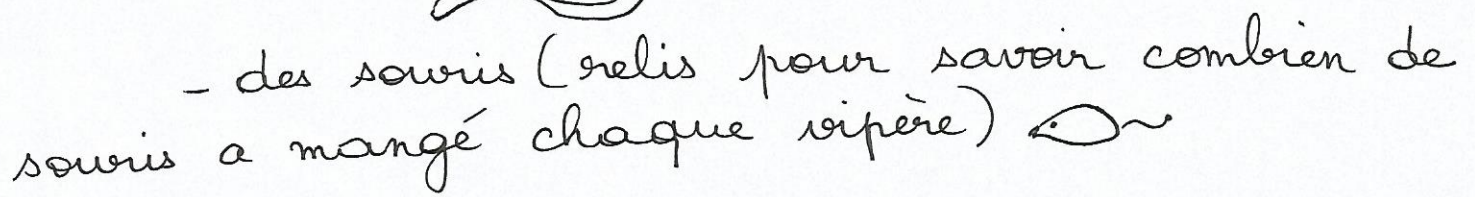 - des souris (relis pour savoir combien de
souris a mangé chaque vipère)